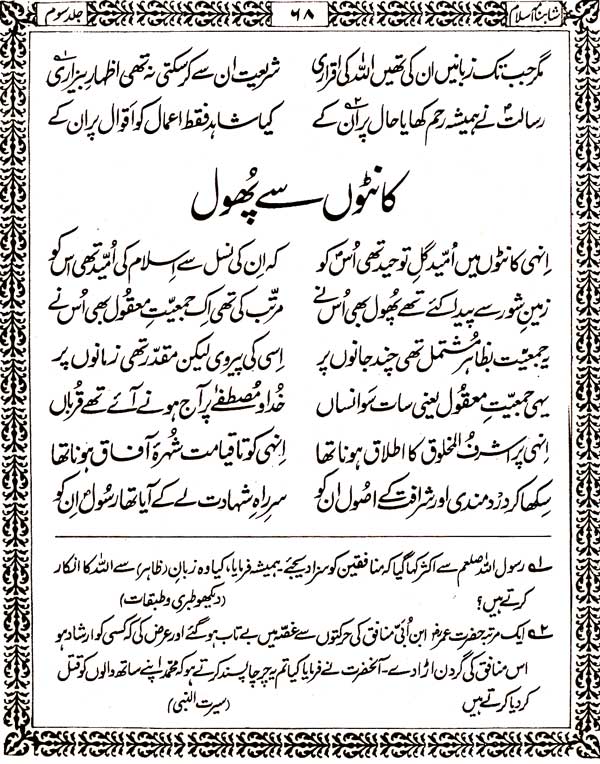 شاہنامۂ اسلام ۶۸ جلد سوم
مگر جب تک زبانیں ان کی تھیں اللہ کی اقراری شریعت ان سے کر سکتی نہ تھی اظہارِ بیزاری ۱
رسالت نے ہمیشہ رحم کھایا حال پر ان کے ۲ کیا شاہد فقط اعمال کو اقوال پر ان کے
کانٹوں سے پھول
انہی کانٹوں میں اُمیدِ گلِ توحید تھی اُس کو کہ ان کی نسل سے اسلام کی اُمید تھی اس کو
زمینِ شور سے پیدا کئے تھے پھول بھی اُس نے مرتب کی تھی اک جمعیتِ معقول بھی اُس نے
یہ جمعیت بظاہر مشتمل تھی چند جانوں پر اسی کی پیروی لیکن مقدر تھی زمانوں پر
یہی جمعیتِ معقول یعنی سات سو انساں خدا و مصطفےٰ پر آج ہونے آئے تھے قرباں
انہی پر اشرفُ المخلوق کا اطلاق ہونا تھا انہی کو تا قیامت شہرۂ آفاق ہونا تھا
سکھا کر دردمندی اور شرافت کے اصول ان کو سرِ راہِ شہادت لے کے آیا تھا رسولؐ ان کو
۱ رسول اللہ صلعم سے اکثر کہا گیا کہ منافقین کو سزا دیجئے ہمیشہ فرمایا، کیا وہ زبانِ (ظاہر) سے اللہ کا انکار
کرتے ہیں؟ (دیکھو طبری و طبقات)
۲ ایک مرتبہ حضرت عمرؓ ابن اُبیّ منافق کی حرکتوں سے غصہ میں بے تاب ہو گئے اور عرض کی کہ کسی کو ارشاد ہو
اس منافق کی گردن اڑا دے۔ آنحضرت نے فرمایا کیا تم یہ چرچا پسند کرتے ہو کہ محمدؐ اپنے ساتھ والوں کو قتل
کر دیا کرتے ہیں (سیرت النبی)